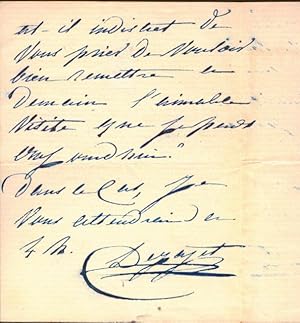 est-il indiscret de
vous prier de vouloir
bien remettre à
Demain l'aimable
Visite que je perds
aujourd'hui?
Dans ce Cas, Je
Vous attendrai à
4 h.
Dejazet